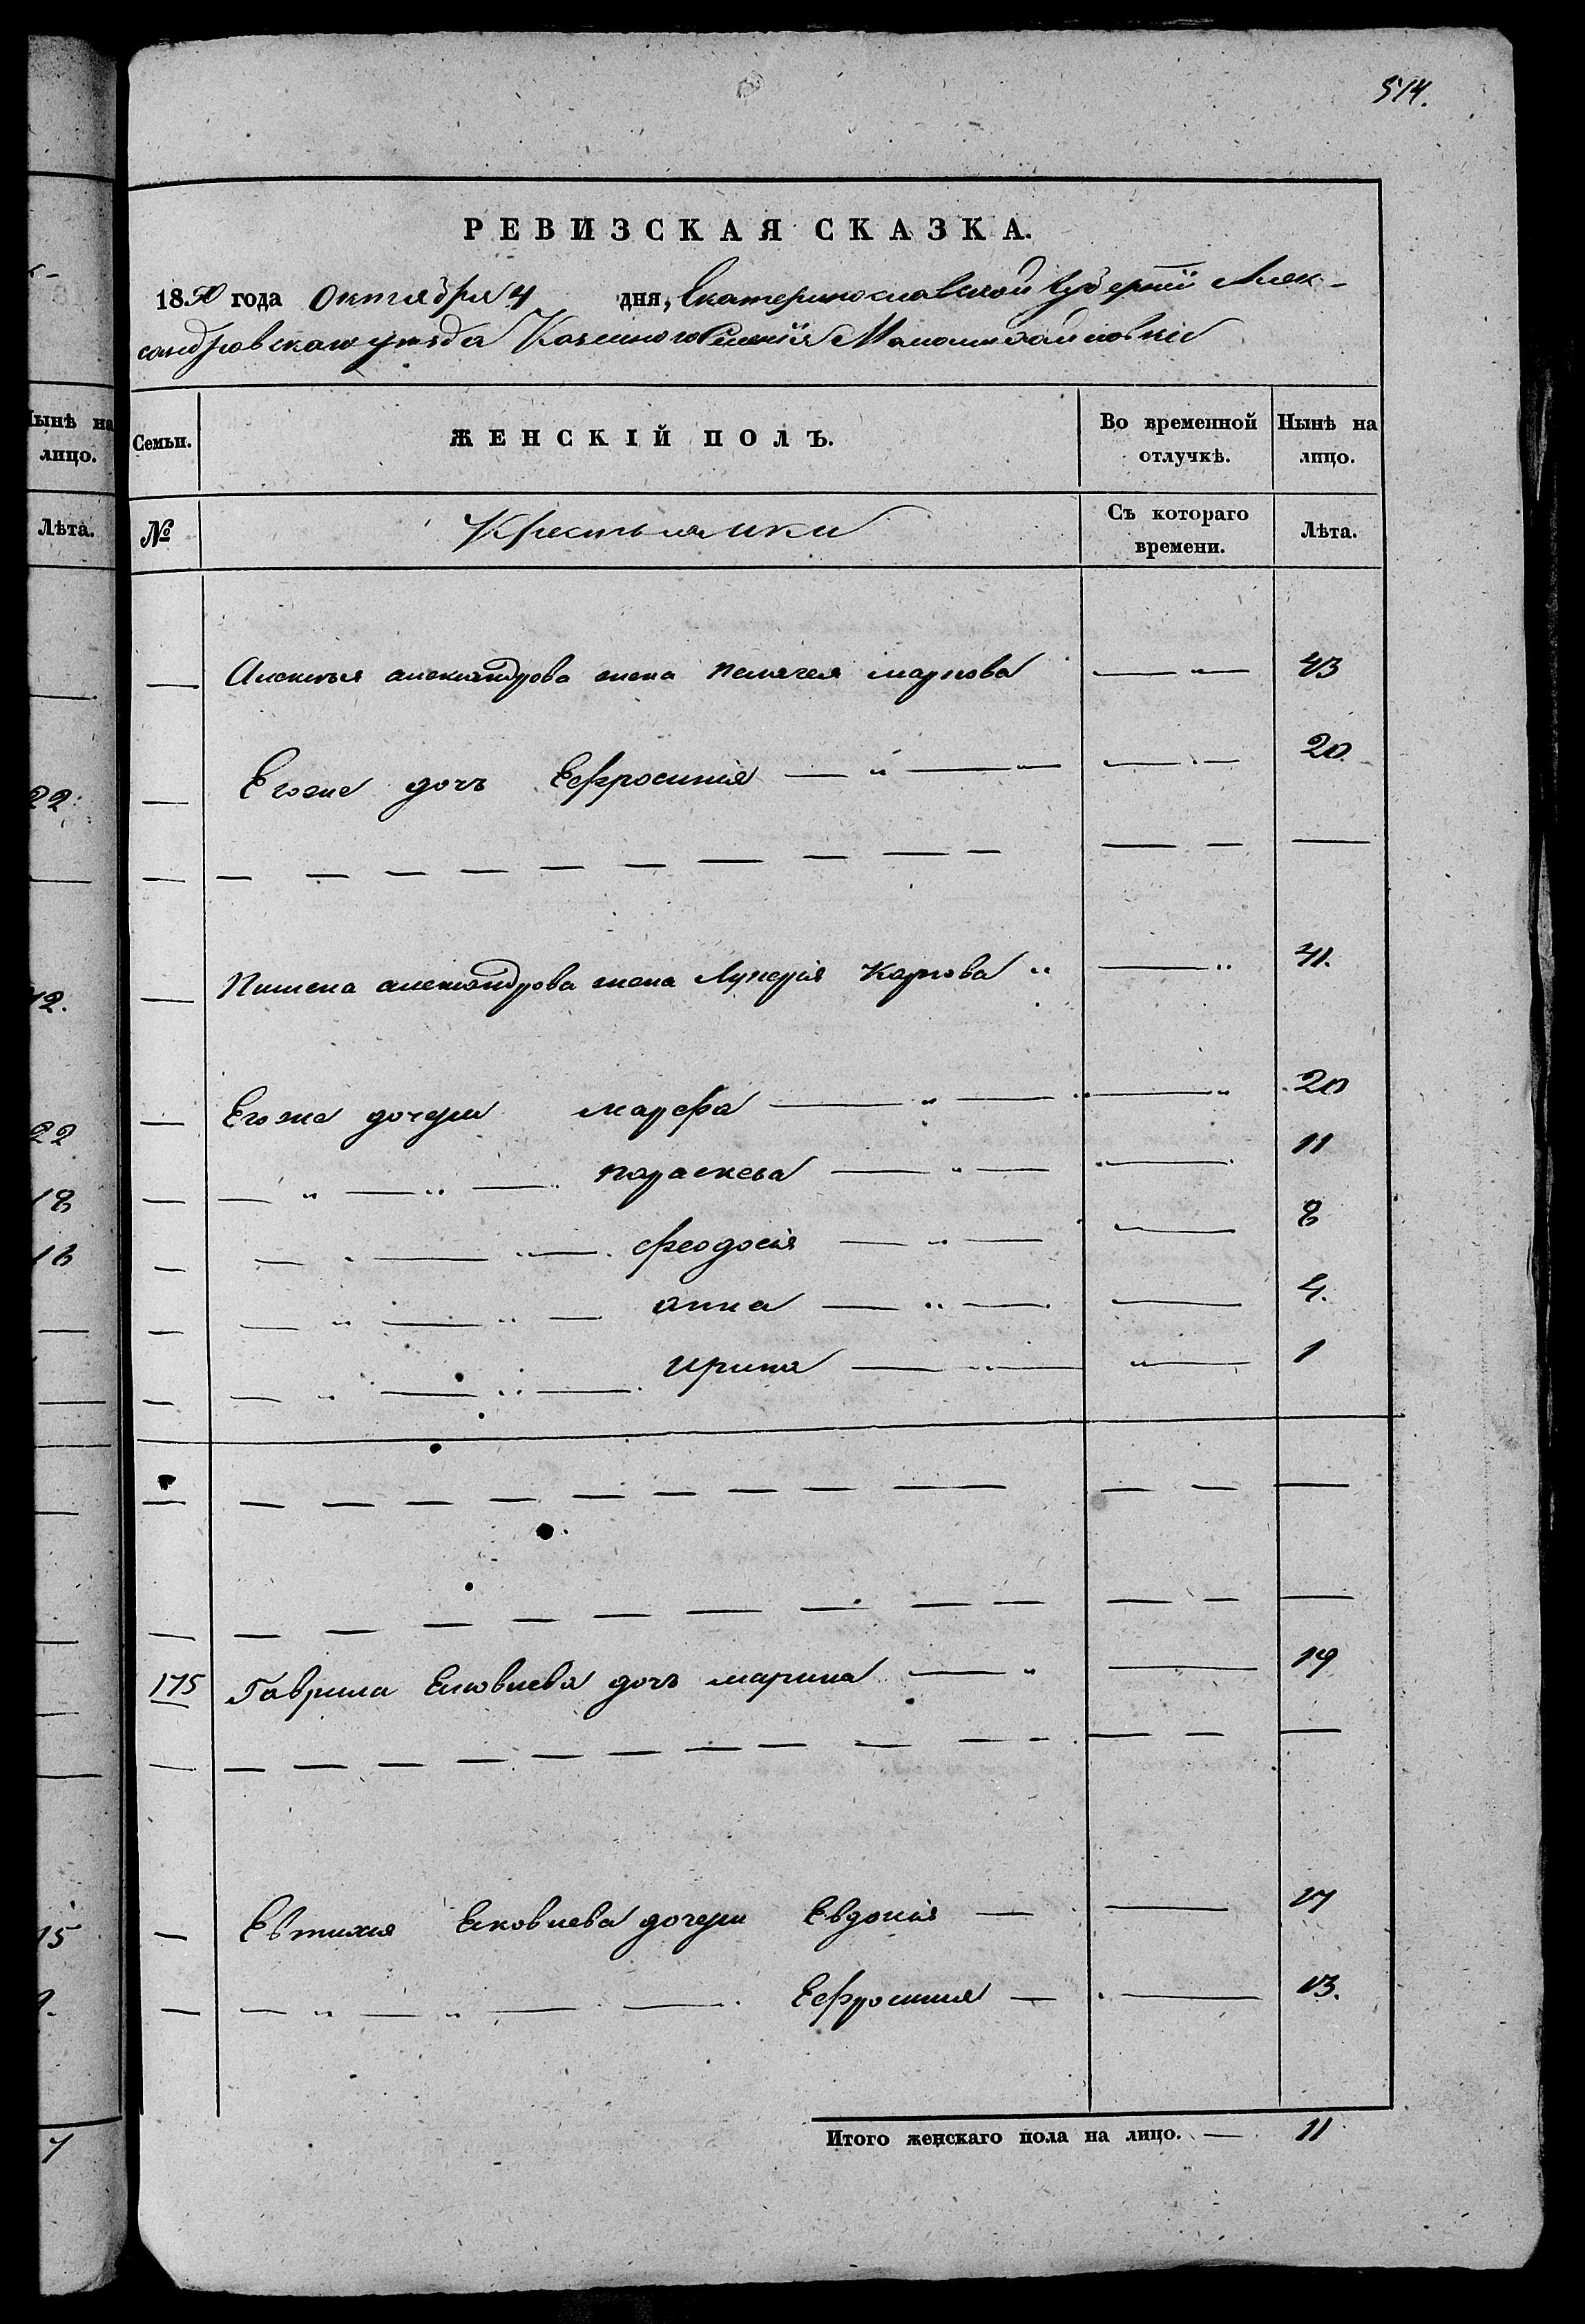 514.
РЕВИЗСКАЯ СКАЗКА.
1850 года Октября 4 дня, Екатеринославской Губернии Алек-
сандровскаго уѣзда Казеннаго Селенія Маломихайловки
Нынѣ на лицо.
Семьи. ЖЕНСКІЙ ПОЛЪ. Во временной отлучкѣ. Нынѣ на лицо.
Лѣта.
№ Крестьянки Съ котораго времени. Лѣта.
Алексѣя александрова жена пелагея маркова — " — 43
22. Егоже дочь Ефросинія — " — " — — " — 20
— — — — — — — — — —
12. Пимена александрова жена Лукерія Карпова " — " 41.
22 Егоже дочери марфа — " — " — " 20
18 — " — " — параскева — " — " — 11
16 — " — " — феодосія — " — — 8
— " — " — анна — " — — 4.
— " — " — ирина — " — " — 1
— — — — — — — — — —
— — — — — — — — — —
175 Гаврила Яковлева дочь марина — " — 19
— — — — — — — — — —
15 Евтихия Яковлева дочери Евдокія — — 17
— " — " — — Ефросиния — — 13.
7 Итого женскаго пола на лицо. — 11